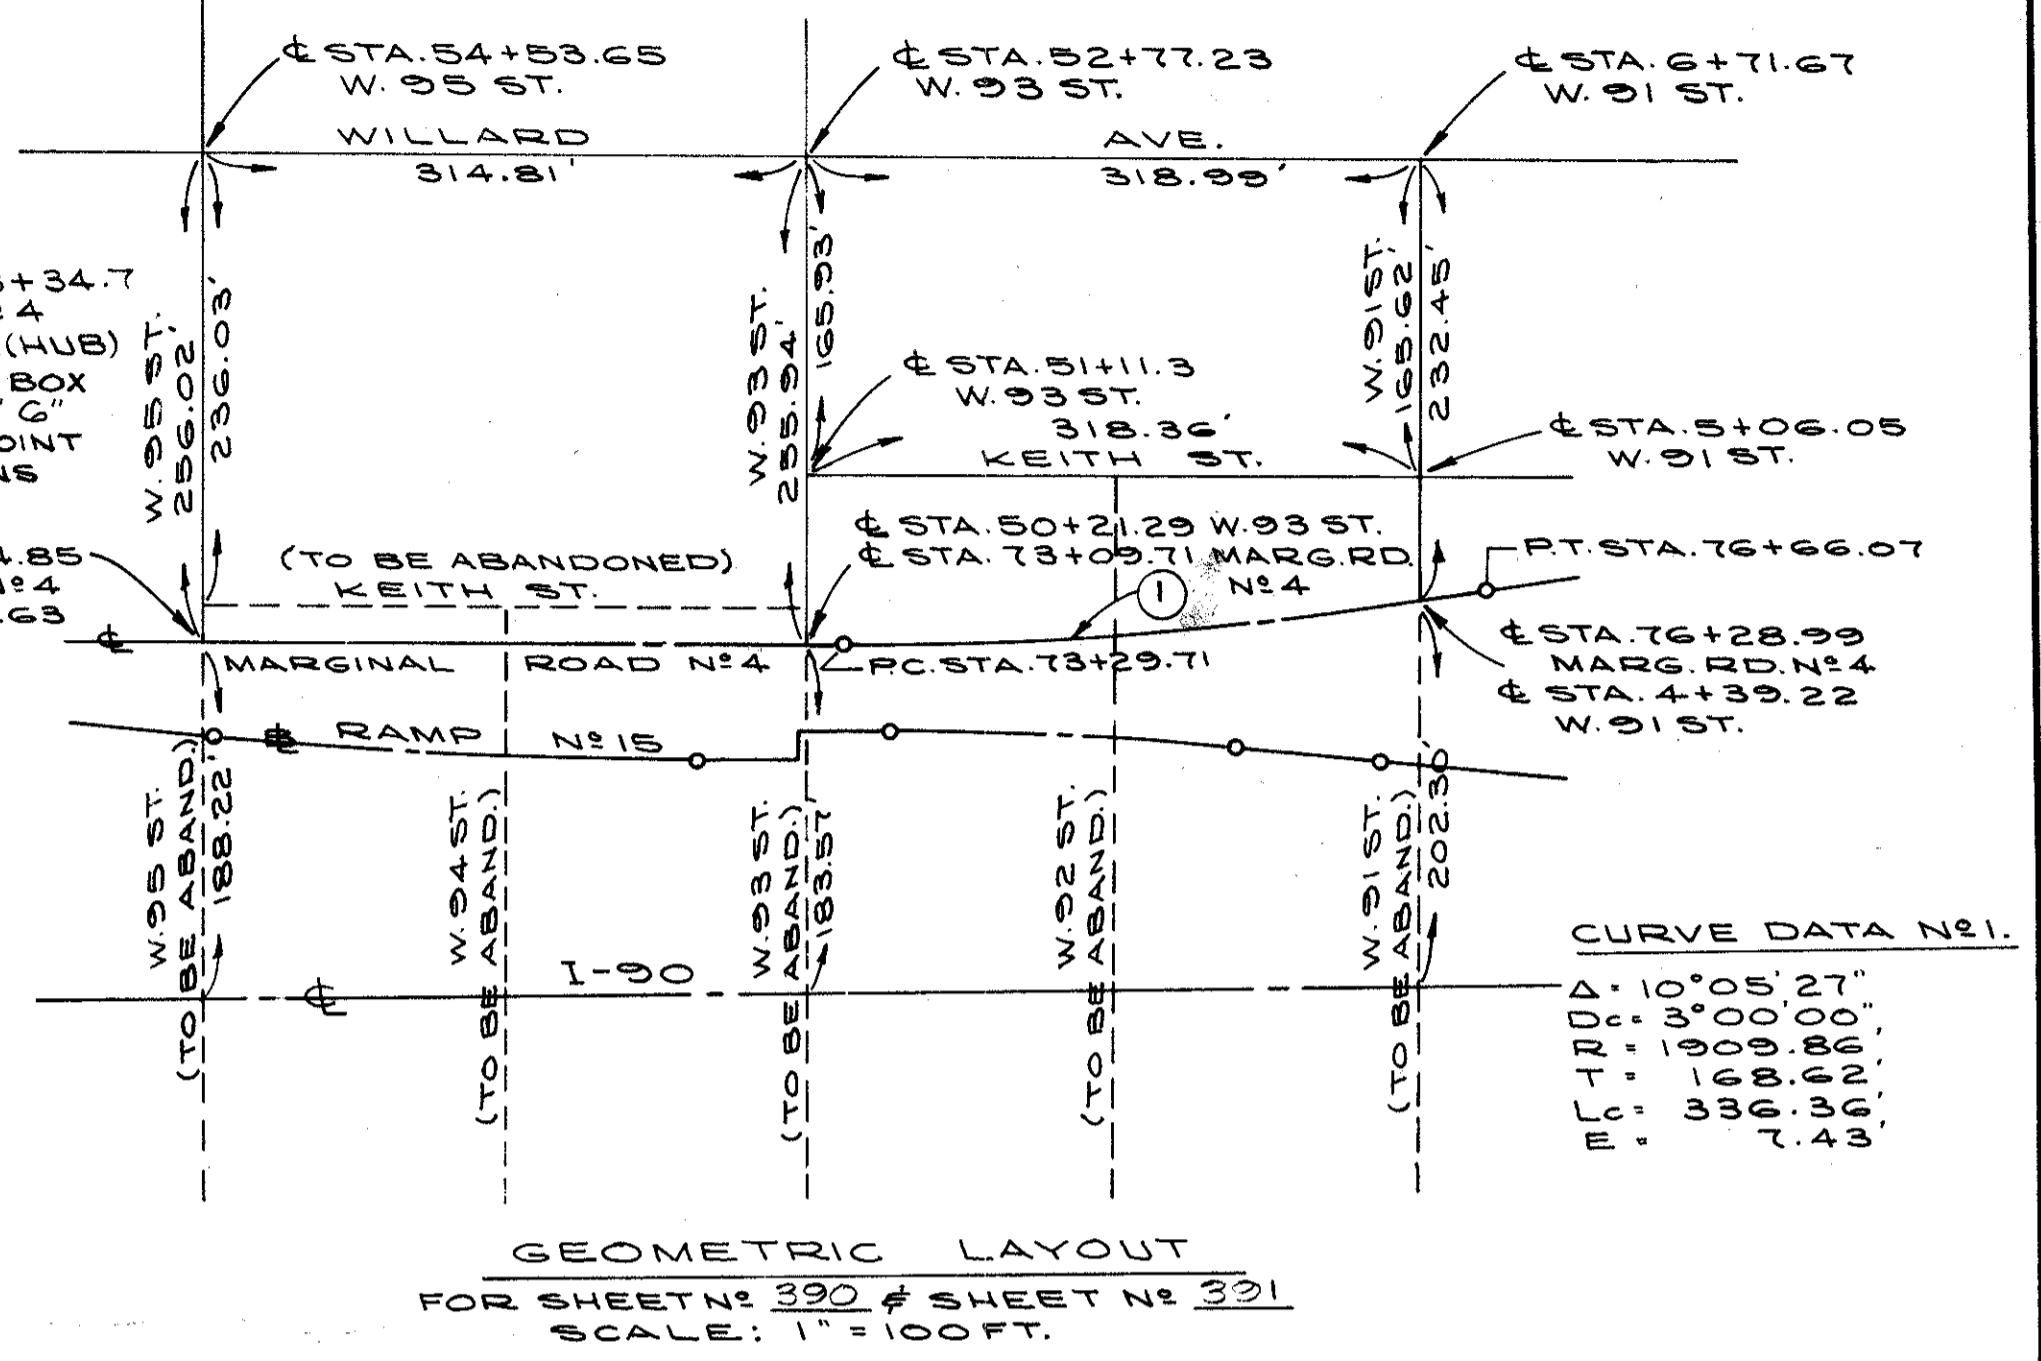 ℄ STA. 54+53.65
W. 95 ST.
℄ STA. 52+77.23
W. 93 ST.
℄ STA. 6+71.67
W. 91 ST.
WILLARD AVE.
314.81'
318.99'
+34.7
4
(HUB)
BOX
6"
W. 95 ST.
256.02'
236.03'
W. 93 ST.
255.94'
165.93'
W. 91 ST.
165.62'
232.45'
℄ STA. 51+11.3
W. 93 ST.
318.36'
KEITH ST.
℄ STA. 5+06.05
W. 91 ST.
4.85
Nº 4
.63
(TO BE ABANDONED)
KEITH ST.
℄ STA. 50+21.29 W. 93 ST.
℄ STA. 73+09.71 MARG. RD.
Nº 4
1
P.T. STA. 76+66.07
℄
MARGINAL ROAD Nº 4
P.C. STA. 73+29.71
℄ STA. 76+28.99
MARG. RD. Nº 4
℄ STA. 4+39.22
W. 91 ST.
RAMP Nº 15
W. 95 ST.
(TO BE ABAND.)
188.22'
W. 94 ST.
(TO BE ABAND.)
W. 93 ST.
(TO BE ABAND.)
183.57'
W. 92 ST.
(TO BE ABAND.)
W. 91 ST.
(TO BE ABAND.)
202.30'
℄ I-90
CURVE DATA Nº 1.
Δ = 10°05'27"
Dc = 3°00'00"
R = 1909.86'
T = 168.62'
Lc = 336.36'
E = 7.43'
GEOMETRIC LAYOUT
FOR SHEET Nº 390 & SHEET Nº 391
SCALE: 1" = 100 FT.